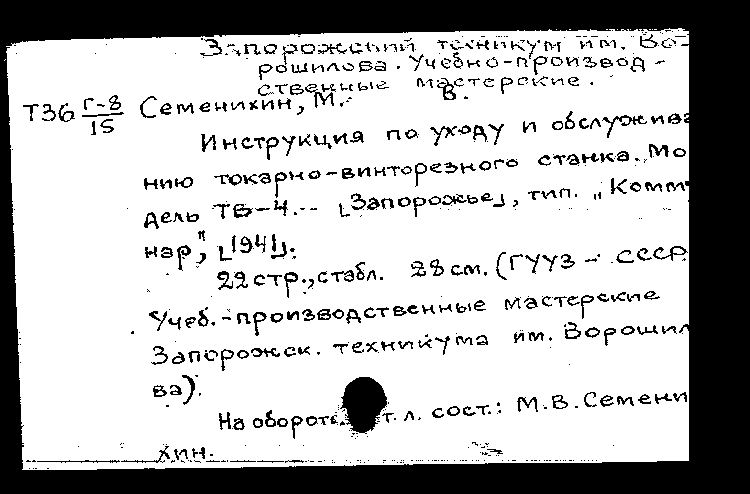 Запорожский техникум им. Во-
рошилова. Учебно-производ-
ственные мастерские.
Т36 Г-8/15 Семенихин, М. В.
Инструкция по уходу и обслужива
нию токарно-винторезного станка. Мо
дель ТВ-4.-- [Запорожье], тип. „Комму
нар", [1941].
22 стр., с табл. 28 см. (ГУУЗ - СССР.
Учеб.-производственные мастерские
Запорожск. техникума им. Ворошил
ва).
На обороте т. л. сост.: М.В. Семени
хин.